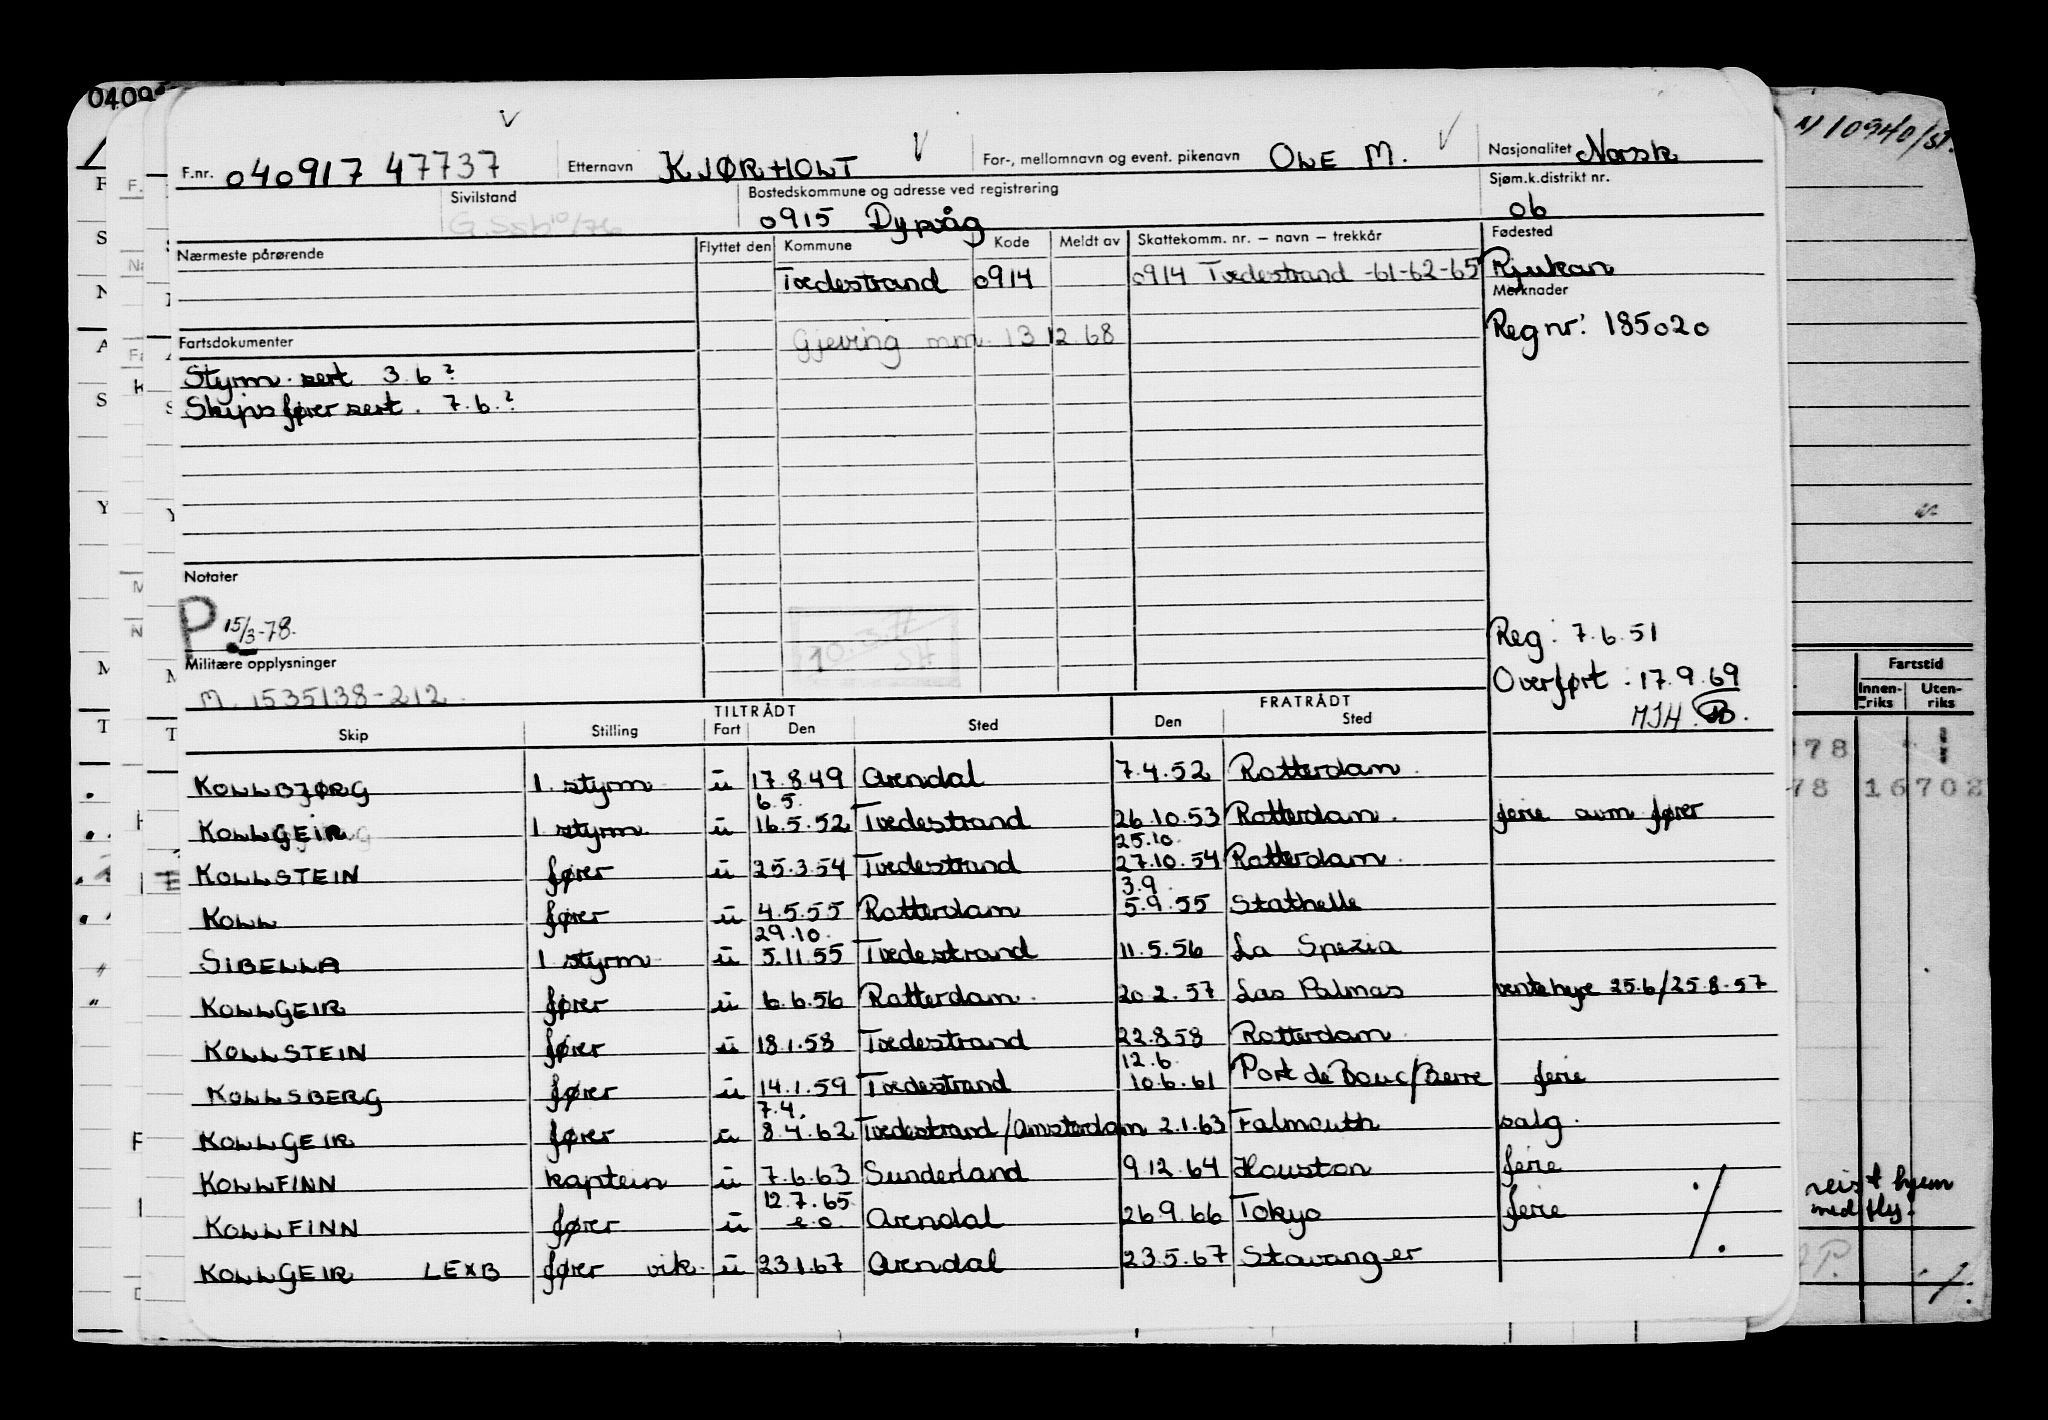 F.nr. 040917 47737 Etternavn KJØRHOLT For-, mellomnavn og event. pikenavn OLE M. Nasjonalitet Norsk
Sivilstand Bostedskommune og adresse ved registrering Sjøm.k.distrikt nr.
0915 Dypvåg 06
Nærmeste pårørende Flyttet den Kommune Kode Meldt av Skattekomm. nr. – navn – trekkår Fødested
Tvedestrand 0914 0914 Tvedestrand -61-62-65 Rjukan
Merknader
Reg nr: 185020
Fartsdokumenter Gjeving mm. 13 12.68
Styrm. sert 3.6?
Skipsfører sert. 7.6.?
Notater
P. 15/3-78.
10.3.77
SH
Reg: 7.6.51
Militære opplysninger
M. 1535138-212. Overført: 17.9.69
MJH.
TILTRÅDT FRATRÅDT
Skip Stilling Fart Den Sted Den Sted
KOLLBJØRG 1. styrm u 17.8.49 Arendal 7.4.52 Rotterdam
6.5.
KOLLGEIR 1 styrm. u 16.5.52 Tvedestrand 26.10.53 Rotterdam. ferie avm fører
25.10.
KOLLSTEIN fører u 25.3.54 Tvedestrand 27.10.54 Rotterdam.
3.9.
KOLL fører u 4.5.55 Rotterdam 5.9.55 Stathelle
29.10.
SIBELLA 1 styrm u 5.11.55 Tvedestrand 11.5.56 La Spezia
KOLLGEIR fører u 6.6.56 Rotterdam. 20.2.57 Las Palmas ventehyre 25.6/25.8.57
KOLLSTEIN fører u 18.1.58 Tvedestrand 22.8.58 Rotterdam.
12.6.
KOLLSBERG fører u 14.1.59 Tvedestrand 10.6.61 Port de Bouc/Berre ferie
7.4.
KOLLGEIR fører u 8.4.62 Tvedestrand/Amsterdam 2.1.63 Falmouth salg.
KOLLFINN kaptein u 7.6.63 Sunderland 9.12.64 Houston ferie
12.7.65
KOLLFINN fører u e.o. Arendal 26.9.66 Tokyo ferie
KOLLGEIR LEXB fører vik. u 23.1.67 Arendal 23.5.67 Stavanger
Fartstid
Innen-riks Uten-riks
78
78 16702
reist hjem
med fly.